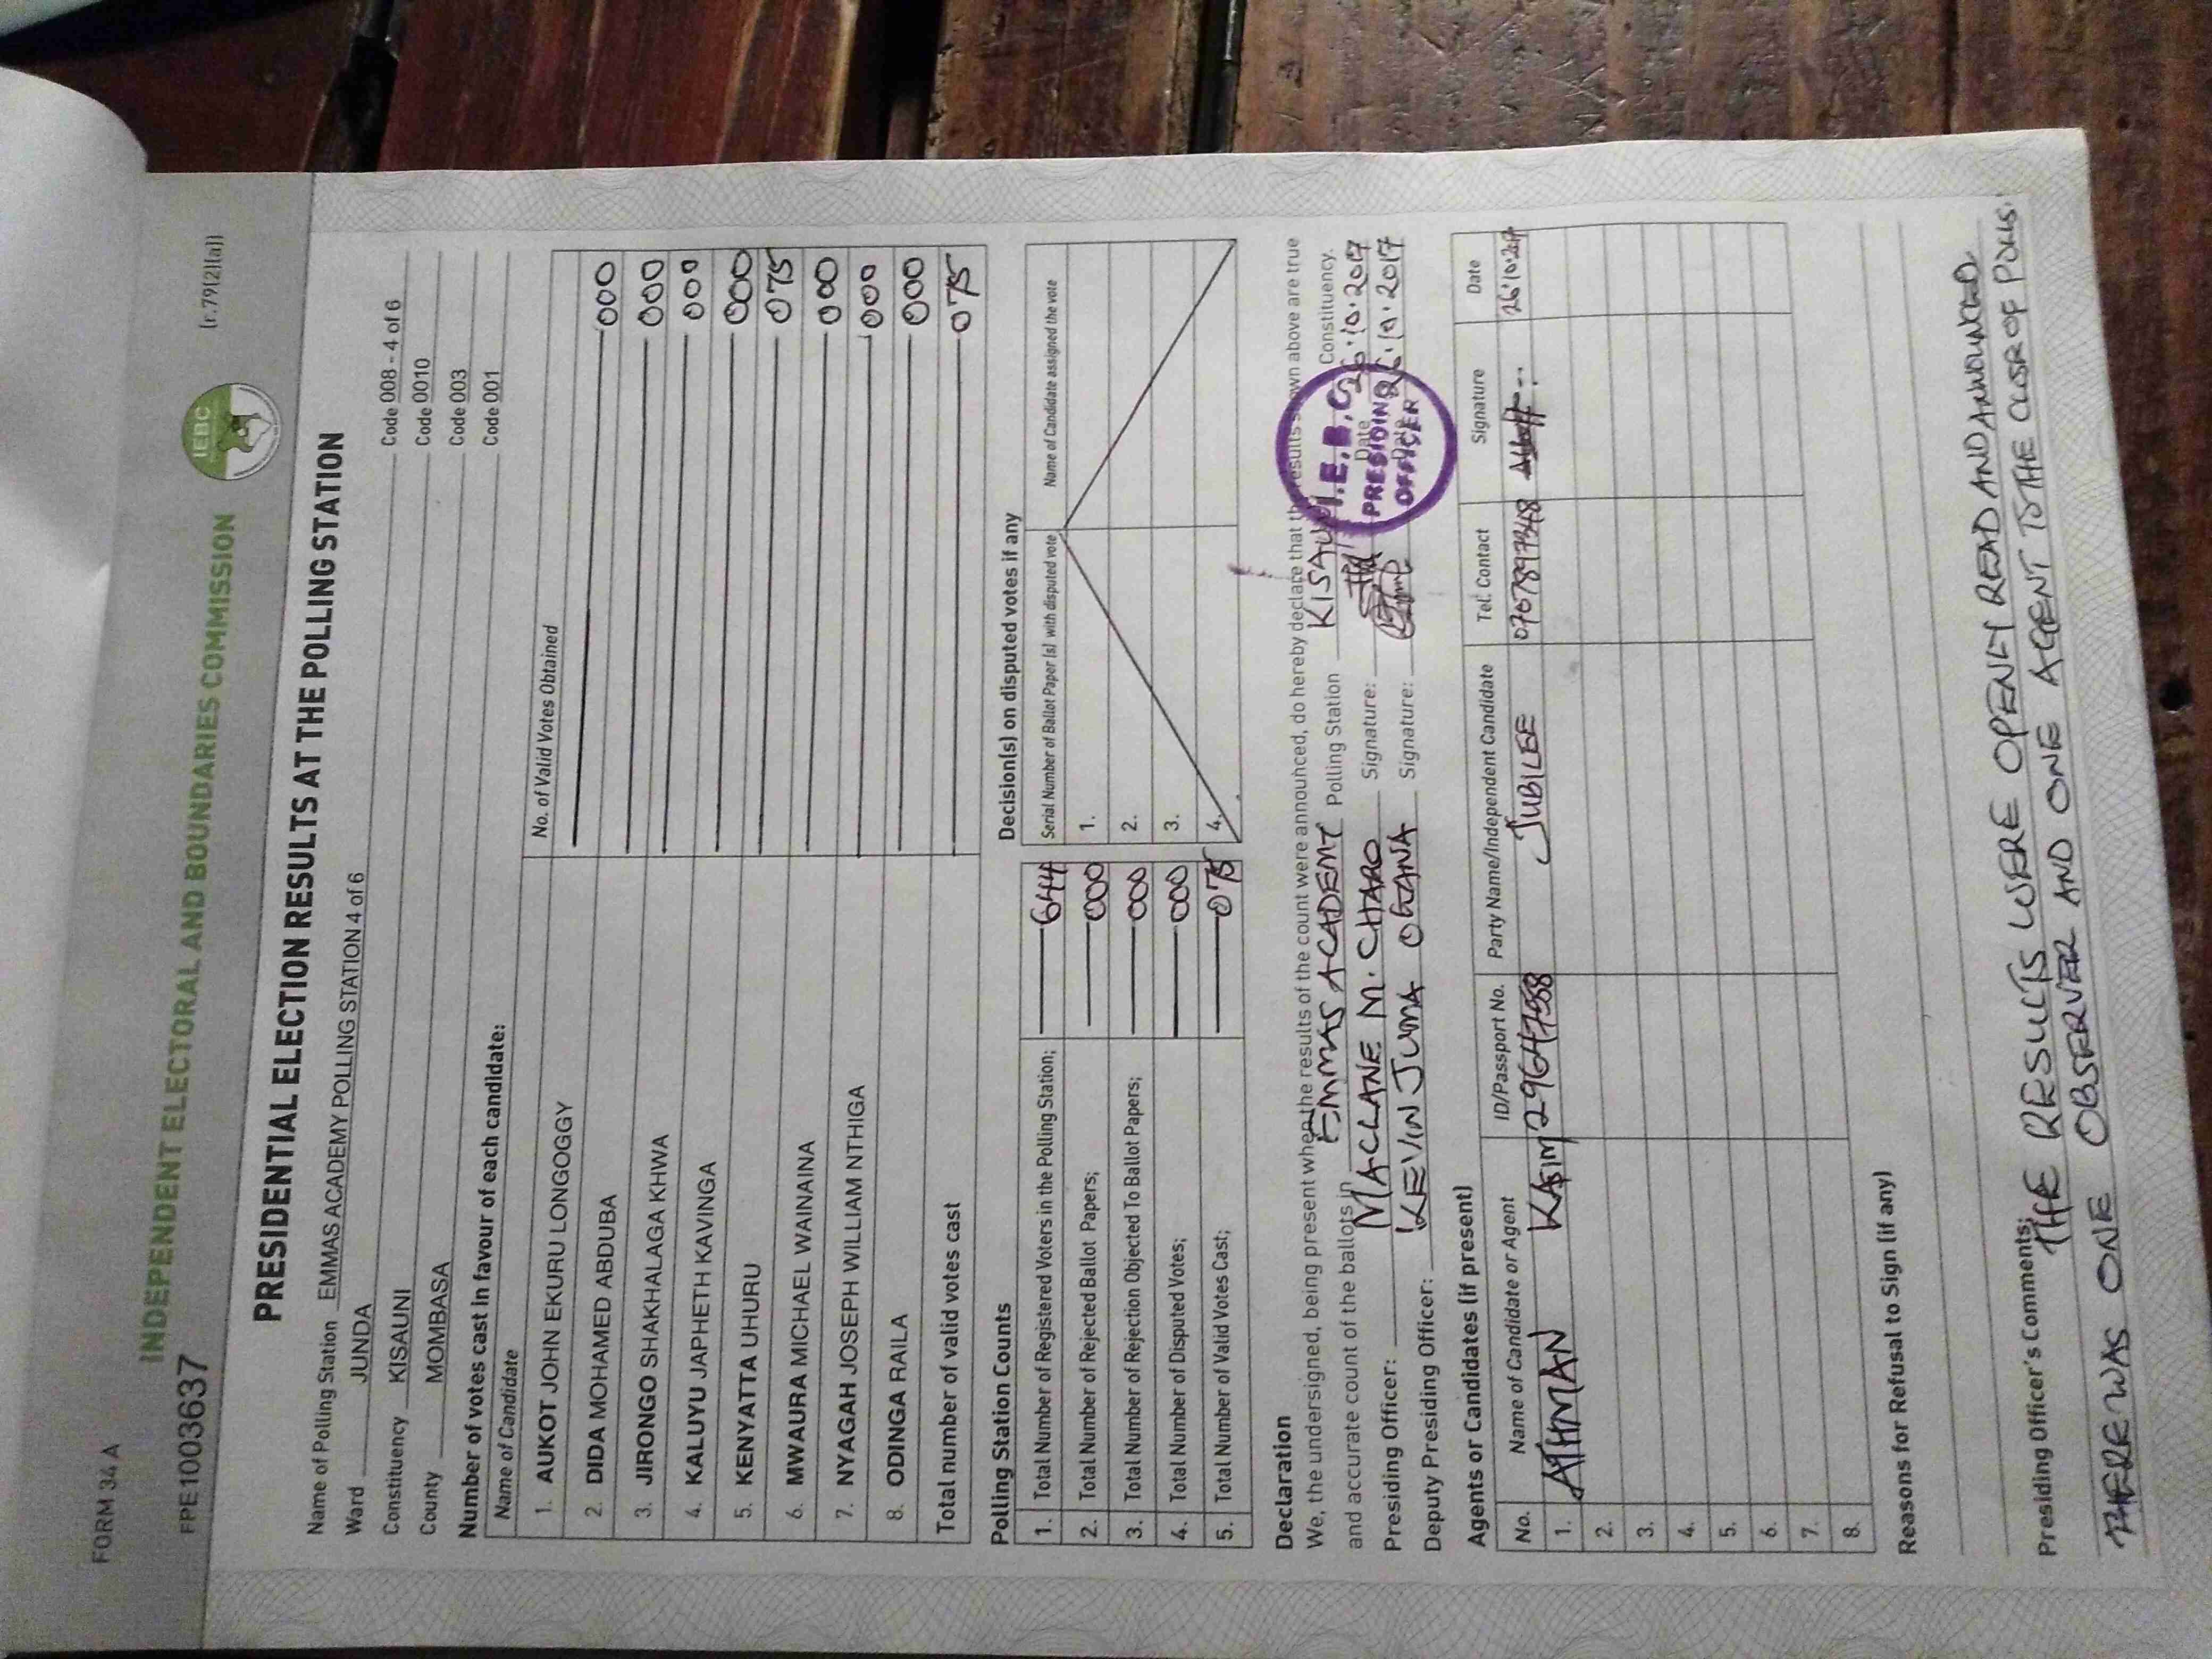 FORM 34 A
INDEPENDENT ELECTORAL AND BOUNDARIES COMMISSION
IEBC
FPE1003637
(r.79(2)(a))
PRESIDENTIAL ELECTION RESULTS AT THE POLLING STATION
Name of Polling Station EMMAS ACADEMY POLLING STATION 4 of 6 Code 008 - 4 of 6
Ward JUNDA Code 0010
Constituency KISAUNI Code 003
County MOMBASA Code 001
Number of votes cast in favour of each candidate:
Name of Candidate No. of Valid Votes Obtained
1. AUKOT JOHN EKURU LONGOGGY 000
2. DIDA MOHAMED ABDUBA 000
3. JIRONGO SHAKHALAGA KHWA 000
4. KALUYU JAPHETH KAVINGA 000
5. KENYATTA UHURU 075
6. MWAURA MICHAEL WAINAINA 000
7. NYAGAH JOSEPH WILLIAM NTHIGA 000
8. ODINGA RAILA 000
Total number of valid votes cast 075
Polling Station Counts
1. Total Number of Registered Voters in the Polling Station; 644
2. Total Number of Rejected Ballot Papers; 000
3. Total Number of Rejection Objected To Ballot Papers; 000
4. Total Number of Disputed Votes; 000
5. Total Number of Valid Votes Cast; 075
Decision(s) on disputed votes if any
Serial Number of Ballot Paper (s) with disputed vote Name of Candidate assigned the vote
1.
2.
3.
4.
Declaration
We, the undersigned, being present when the results of the count were announced, do hereby declare that the results shown above are true
and accurate count of the ballots in EMMAS ACADEMY Polling Station KISAUNI Constituency.
Presiding Officer: MACCLANE M. CHARO Signature: Date 26.10.2017
Deputy Presiding Officer: KEVIN JUMA OGANA Signature: Date 26.10.2017
I.E.B.C
PRESIDING
OFFICER
Agents or Candidates (if present)
No. Name of Candidate or Agent ID/Passport No. Party Name/Independent Candidate Tel. Contact Signature Date
1. ATHMAN KASIM 29647558 JUBILEE 0707897348 26.10.2017
2.
3.
4.
5.
6.
7.
8.
Reasons for Refusal to Sign (if any)
Presiding Officer's Comments; THE RESULTS WERE OPENLY READ AND ANNOUNCED.
THERE WAS ONE OBSERVER AND ONE AGENT TO THE CLOSE OF POLLS.